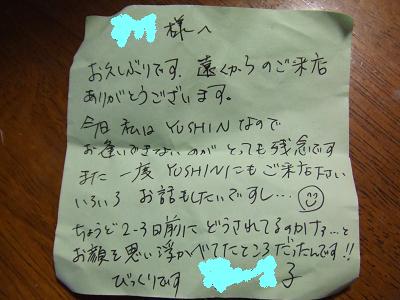 様へ
お久しぶりです。遠くからのご来店
ありがとうございます。
今日私はYUSHINなので
お逢いできないのがとっても残念です
また一度YUSHINにもご来店下さい
いろいろお話もしたいですし…
ちょうど2-3日前にどうされてるのかナァ…と
お顔を思い浮かべてたところだったんです!!
びっくりです
子